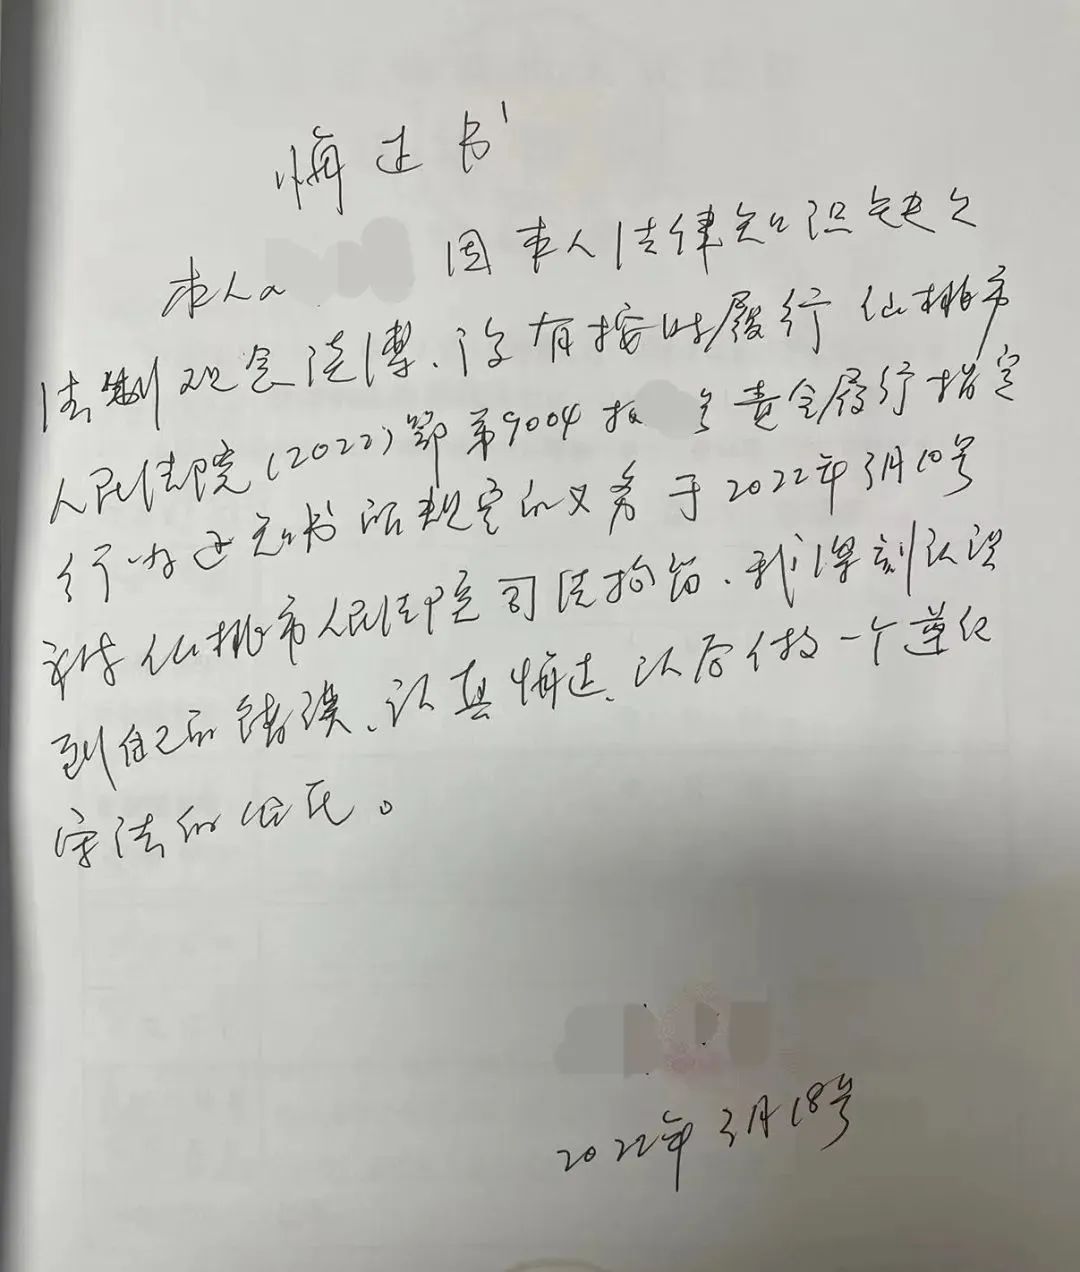 悔过书
本人 因本人法律知识缺乏
法制观念淡薄、没有按时履行仙桃市
人民法院(2022)鄂第9004执 号责令履行指定
行为通知书所规定的义务于2022年3月10号
被仙桃市人民法院司法拘留、我深刻认识
到自己的错误、认真悔过、以后做一个遵纪
守法的公民。
2022年3月18号